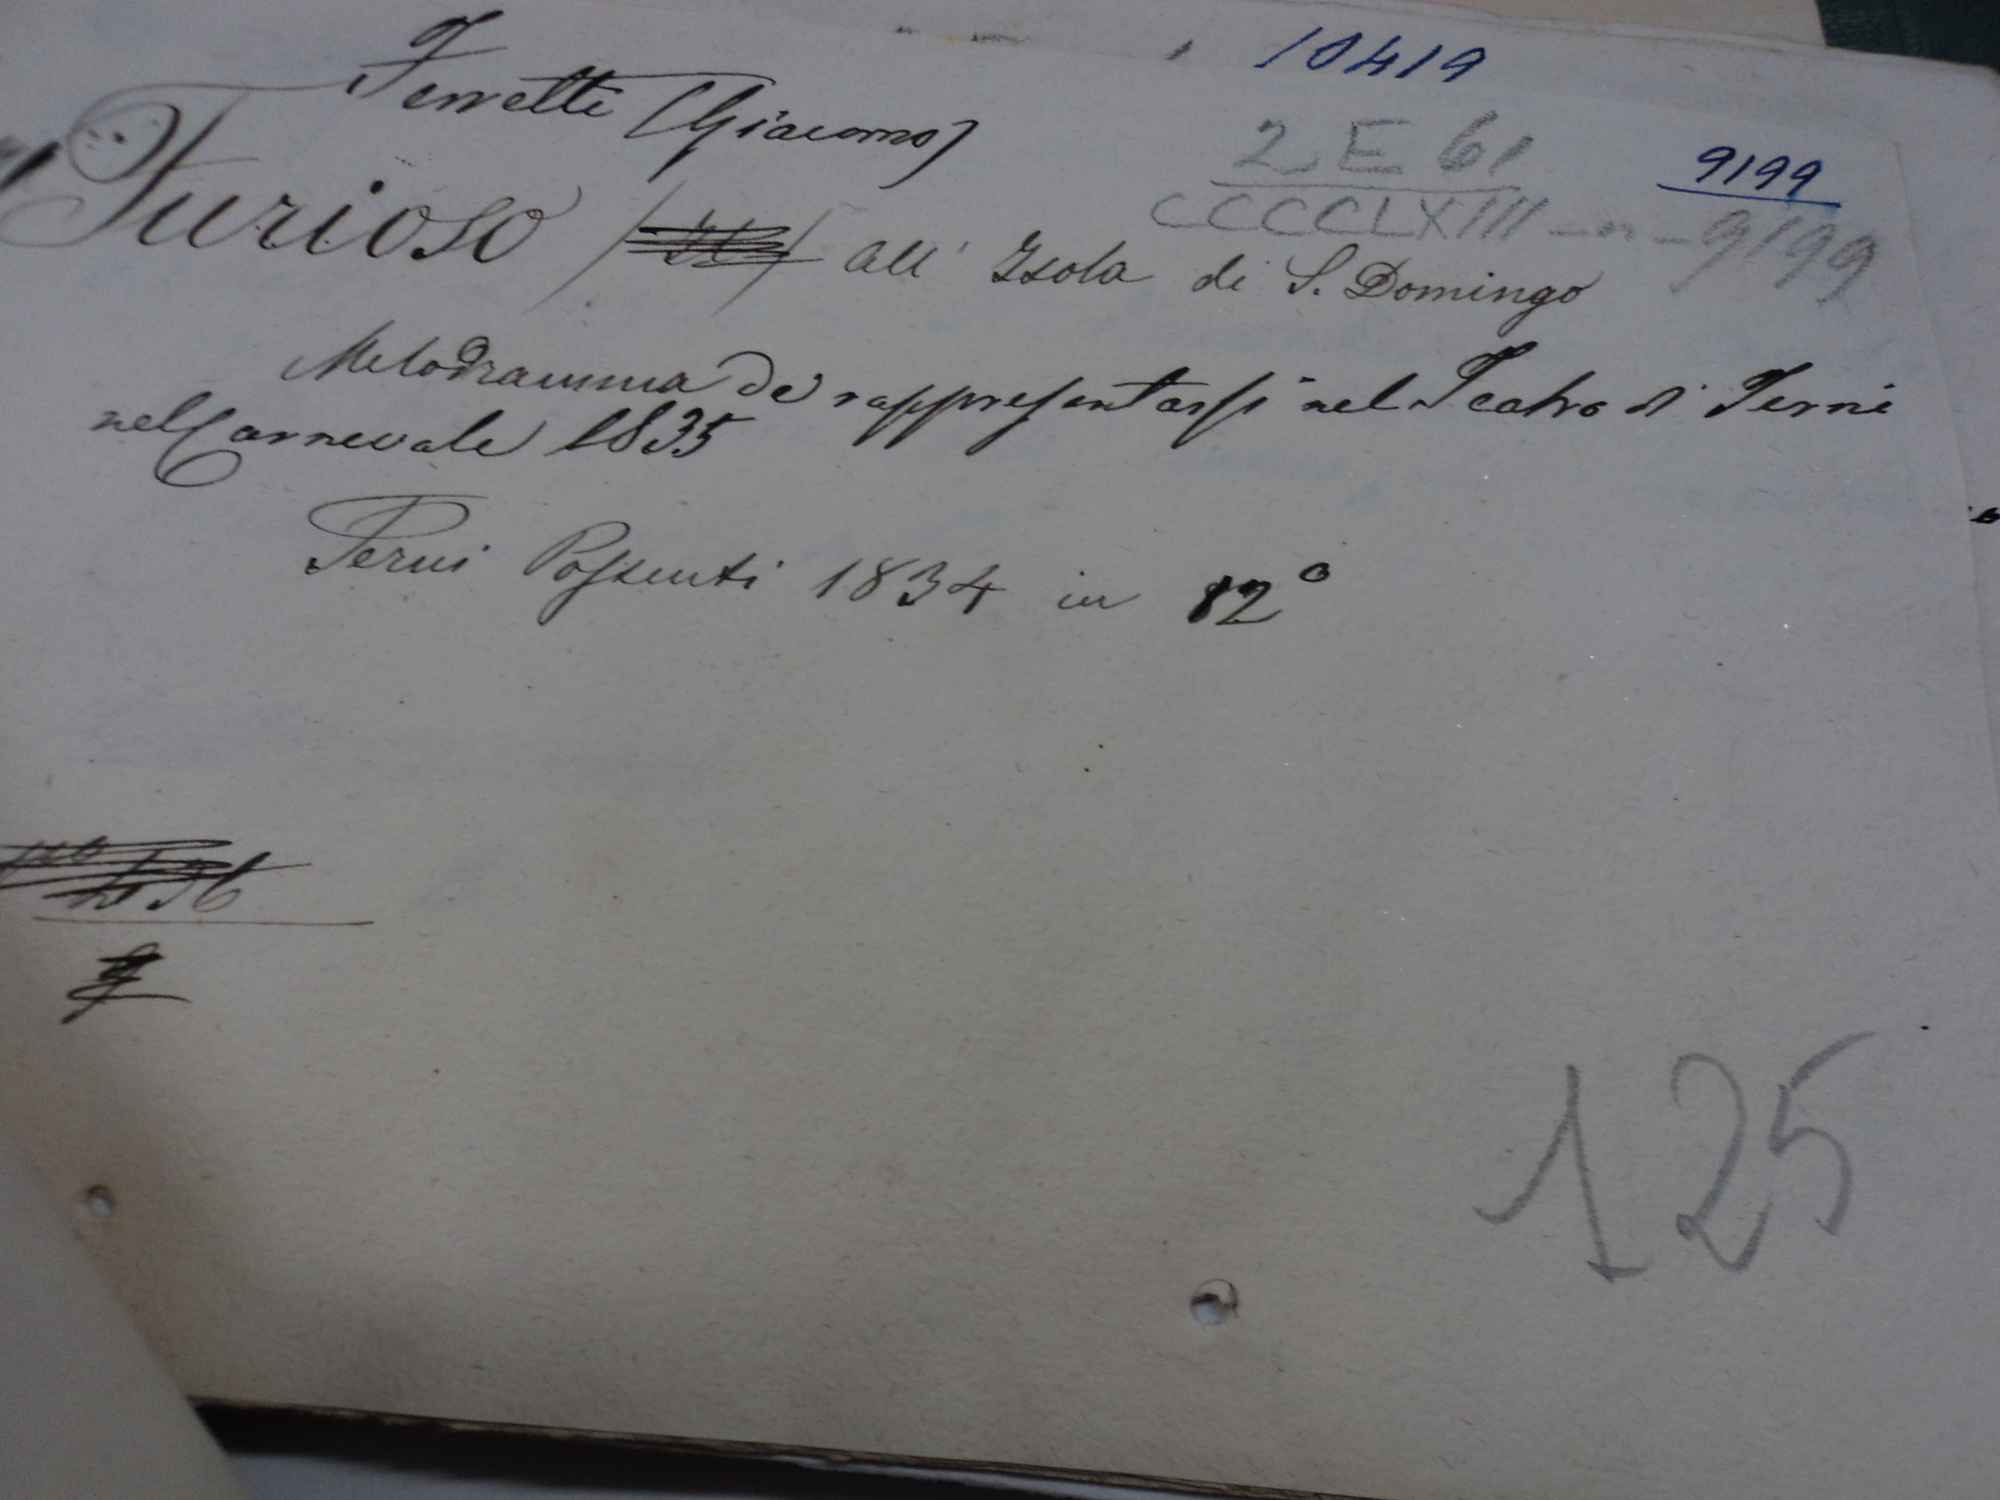 10419
Ferretti (Giacomo)
2 E 61
9199
Furioso all' Isola di S. Domingo
CCCCLXIII - n - 9199
Melodramma da rappresentarsi nel Teatro di Terni
nel Carnevale 1835
Terni Possenti 1834 in 12°
125